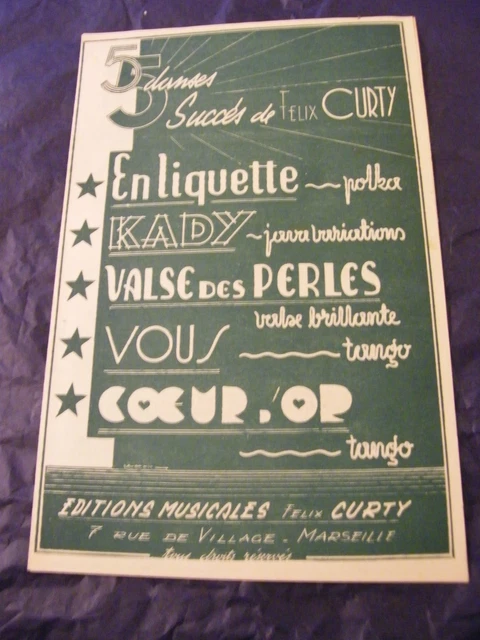 5 danses
Succés de FELIX CURTY
En liquette polka
KADY java variations
VALSE DES PERLES
valse brillante
VOUS tango
CŒUR D'OR
tango
ÉDITIONS MUSICALES FELIX CURTY
7 RUE DE VILLAGE - MARSEILLE
tous droits réservés